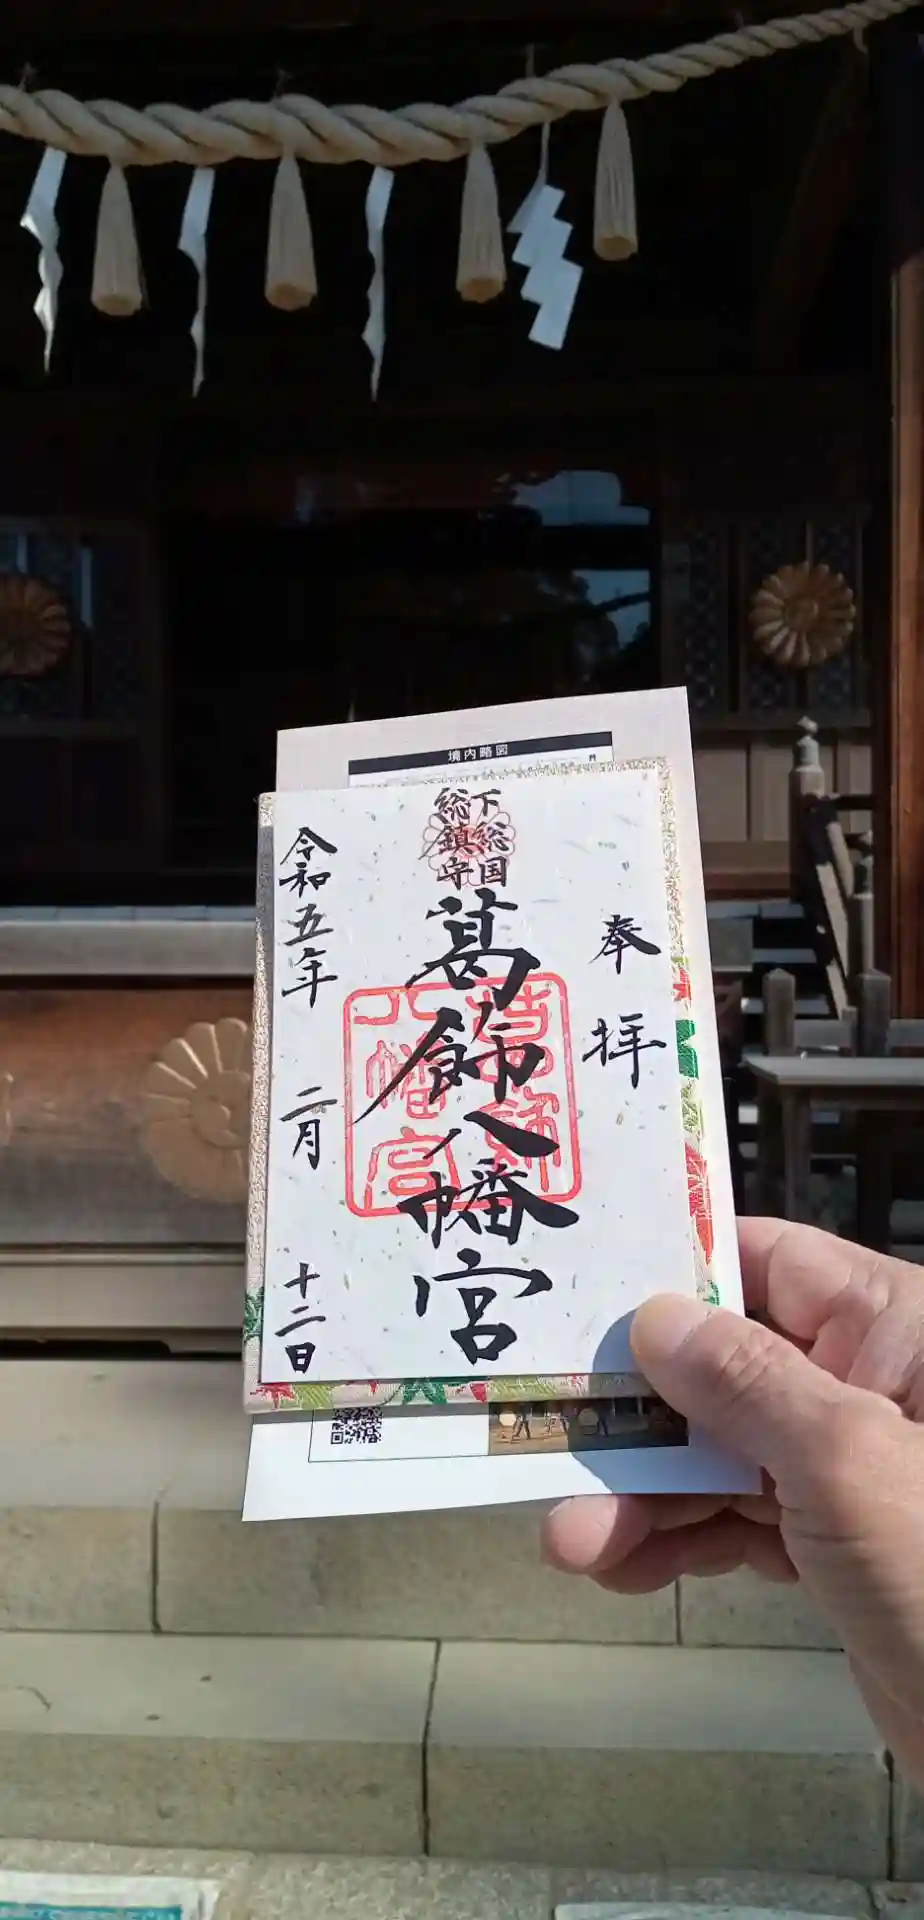 境内略図
奉拝
下総国
総鎮守
葛飾八幡宮
葛飾
八幡宮
令和五年 二月 十二日